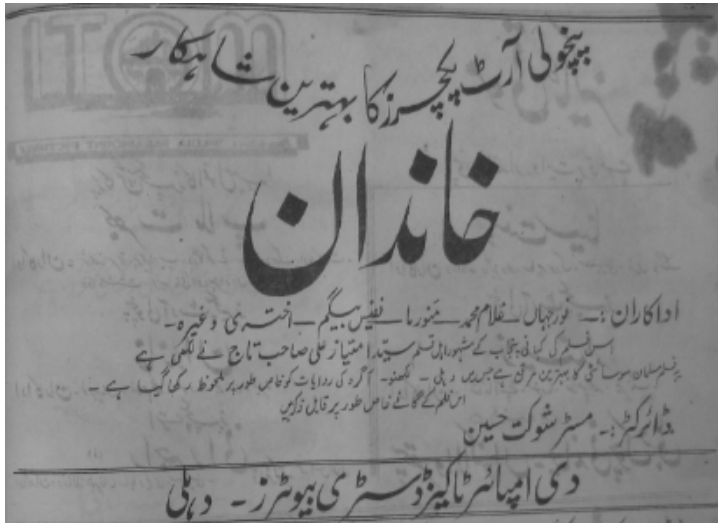 پنچولی آرٹ پکچرز کا بہترین شاہکار
خاندان
اداکاران:۔ نورجہاں۔ غلام محمد۔ منورما۔ نفیس بیگم۔ اختری وغیرہ۔
اس فلم کی کہانی پنجاب کے مشہور اہل قلم سید امتیاز علی صاحب تاج نے لکھی ہے
یہ فلم مسلمان سوسائٹی کا بہترین مرقع ہے جس میں دہلی۔ لکھنو۔ آگرہ کی روایات کو خاص طور پر ملحوظ رکھا گیا ہے۔
اس فلم کے گانے خاص طور پر قابل ذکر ہیں
ڈائرکٹر:۔ مسٹر شوکت حسین
دی امپائر ٹاکیز ڈسٹری بیوٹرز۔ دہلی